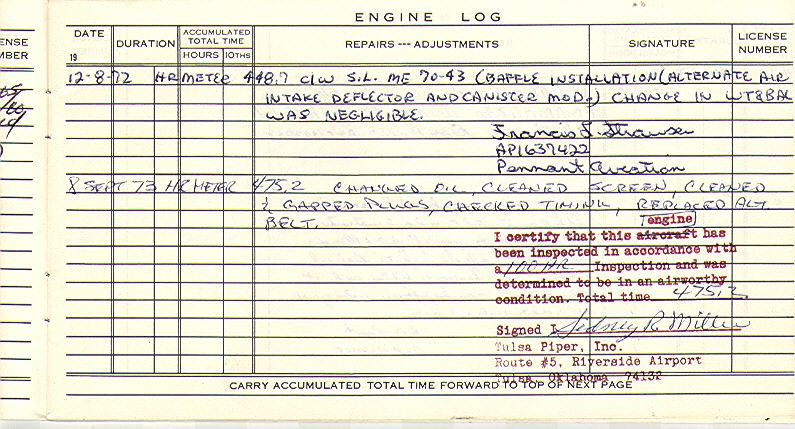 ENGINE LOG
DATE
19
DURATION
ACCUMULATED TOTAL TIME
HOURS 10THS
REPAIRS --- ADJUSTMENTS
SIGNATURE
LICENSE NUMBER
ENSE
MBER
12-8-72 HR METER 448.7 C/W S.L. ME 70-43 (BAFFLE INSTALLATION (ALTERNATE AIR
INTAKE DEFLECTOR AND CANISTER MOD.) CHANGE IN WT&BAL
WAS NEGLIGIBLE.
Francis J.
AP1637422
Pennant Aviation
8 SEPT 73 HR METER 475.2 CHANGED OIL, CLEANED SCREEN, CLEANED
& GAPPED PLUGS, CHECKED TIMING, REPLACED ALT.
BELT.
engine
I certify that this aircraft has
been inspected in accordance with
a 100 HR Inspection and was
determined to be in an airworthy
condition. Total time 475.2
Signed Sidney R. Miller
Tulsa Piper, Inc.
Route #5, Riverside Airport
Tulsa, Oklahoma 74132
CARRY ACCUMULATED TOTAL TIME FORWARD TO TOP OF NEXT PAGE